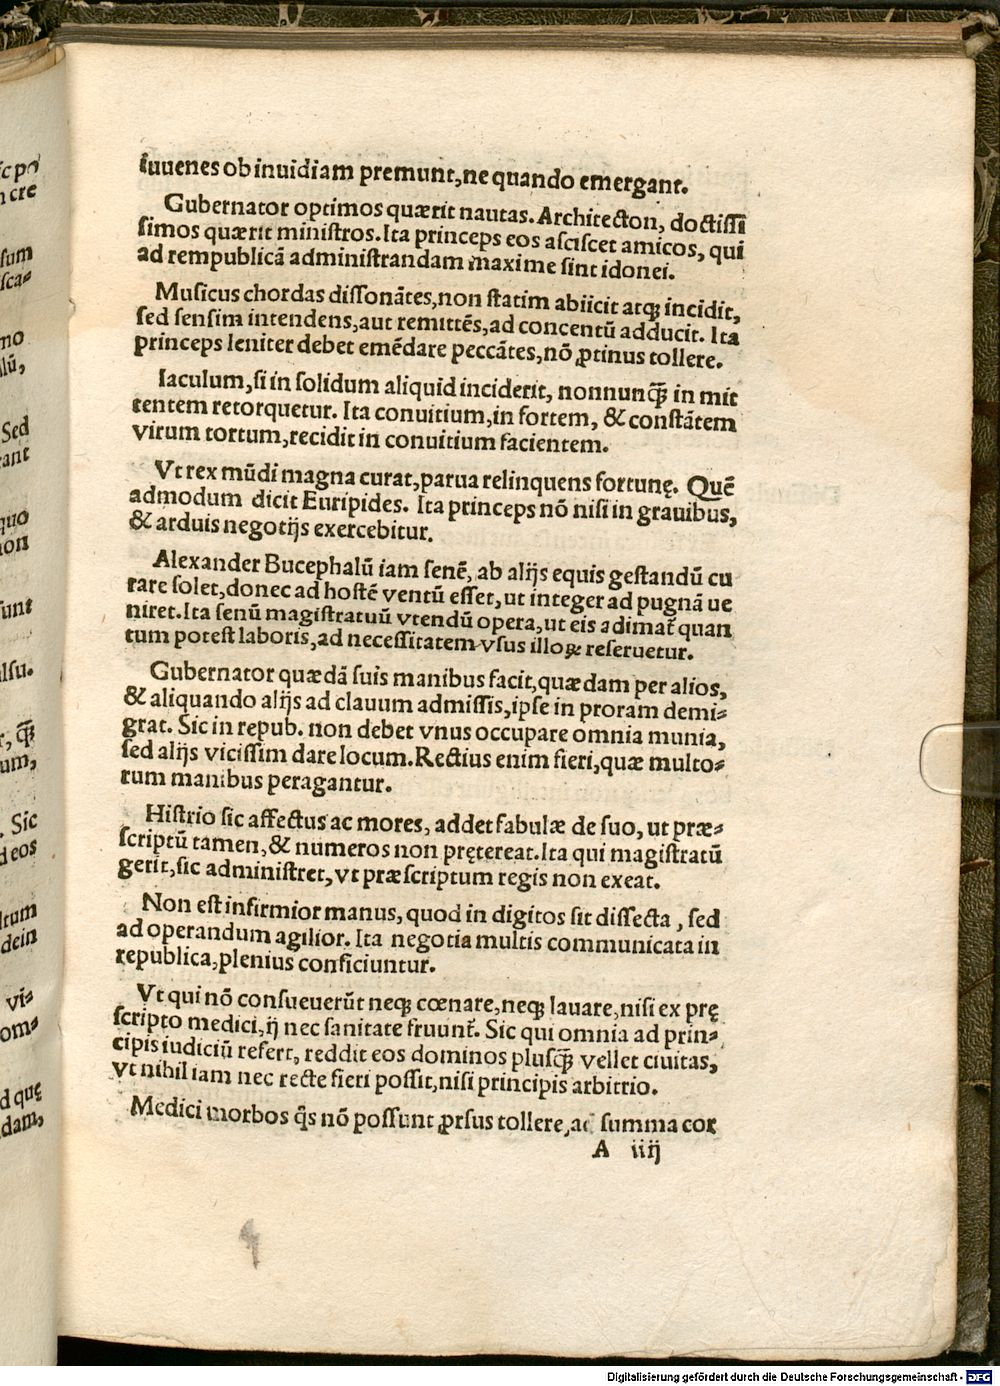 iuuenes ob inuidiam premunt, ne quando emergant.
Gubernator optimos quærit nautas. Architecton, doctiſſi
ſimos quærit miniſtros. Ita princeps eos aſciſcet amicos, qui
ad rempublicã adminiſtrandam maxime ſint idonei.
Muſicus chordas diſſonãtes, non ſtatim abiicit atqꝫ incidit,
ſed ſenſim intendens, aut remittẽs, ad concentũ adducit. Ita
princeps leniter debet emẽdare peccãtes, nõ ꝓtinus tollere.
Iaculum, ſi in ſolidum aliquid inciderit, nonnunq̃ꝫ in mit
tentem retorquetur. Ita conuitium, in fortem, & conſtãtem
virum tortum, recidit in conuitium facientem.
Vt rex mũdi magna curat, parua relinquens fortunę. Quẽ
admodum dicit Euripides. Ita princeps nõ niſi in grauibus,
& arduis negotijs exercebitur.
Alexander Bucephalũ iam ſenẽ, ab alijs equis geſtandũ cu
rare ſolet, donec ad hoſtẽ ventũ eſſet, ut integer ad pugnã ue
niret. Ita ſenũ magiſtratuũ vtendũ opera, ut eis adimat᷑ quan
tum poteſt laboris, ad neceſſitatem vſus illoꝝ reſeruetur.
Gubernator quædã ſuis manibus facit, quædam per alios,
& aliquando alijs ad clauum admiſſis, ipſe in proram demi⸗
grat. Sic in repub. non debet vnus occupare omnia munia,
ſed alijs viciſſim dare locum. Rectius enim fieri, quæ multo⸗
rum manibus peragantur.
Hiſtrio ſic affectus ac mores, addet fabulæ de ſuo, ut præ⸗
ſcriptũ tamen, & numeros non prętereat. Ita qui magiſtratũ
gerit, ſic adminiſtret, vt præſcriptum regis non exeat.
Non eſt infirmior manus, quod in digitos ſit diſſecta, ſed
ad operandum agilior. Ita negotia multis communicata in
republica, plenius conficiuntur.
Vt qui nõ conſueuerũt neqꝫ cœnare, neqꝫ lauare, niſi ex prę
ſcripto medici, ij nec ſanitate fruunt᷑. Sic qui omnia ad prin⸗
cipis iudiciũ refert, reddit eos dominos pluſq̃ꝫ vellet ciuitas,
vt nihil iam nec recte fieri poſſit, niſi principis arbitrio.
Medici morbos q̃s nõ poſſunt ꝓrſus tollere, ad ſumma cor
A iiij
Digitalisierung gefördert durch die Deutsche Forschungsgemeinschaft - DFG